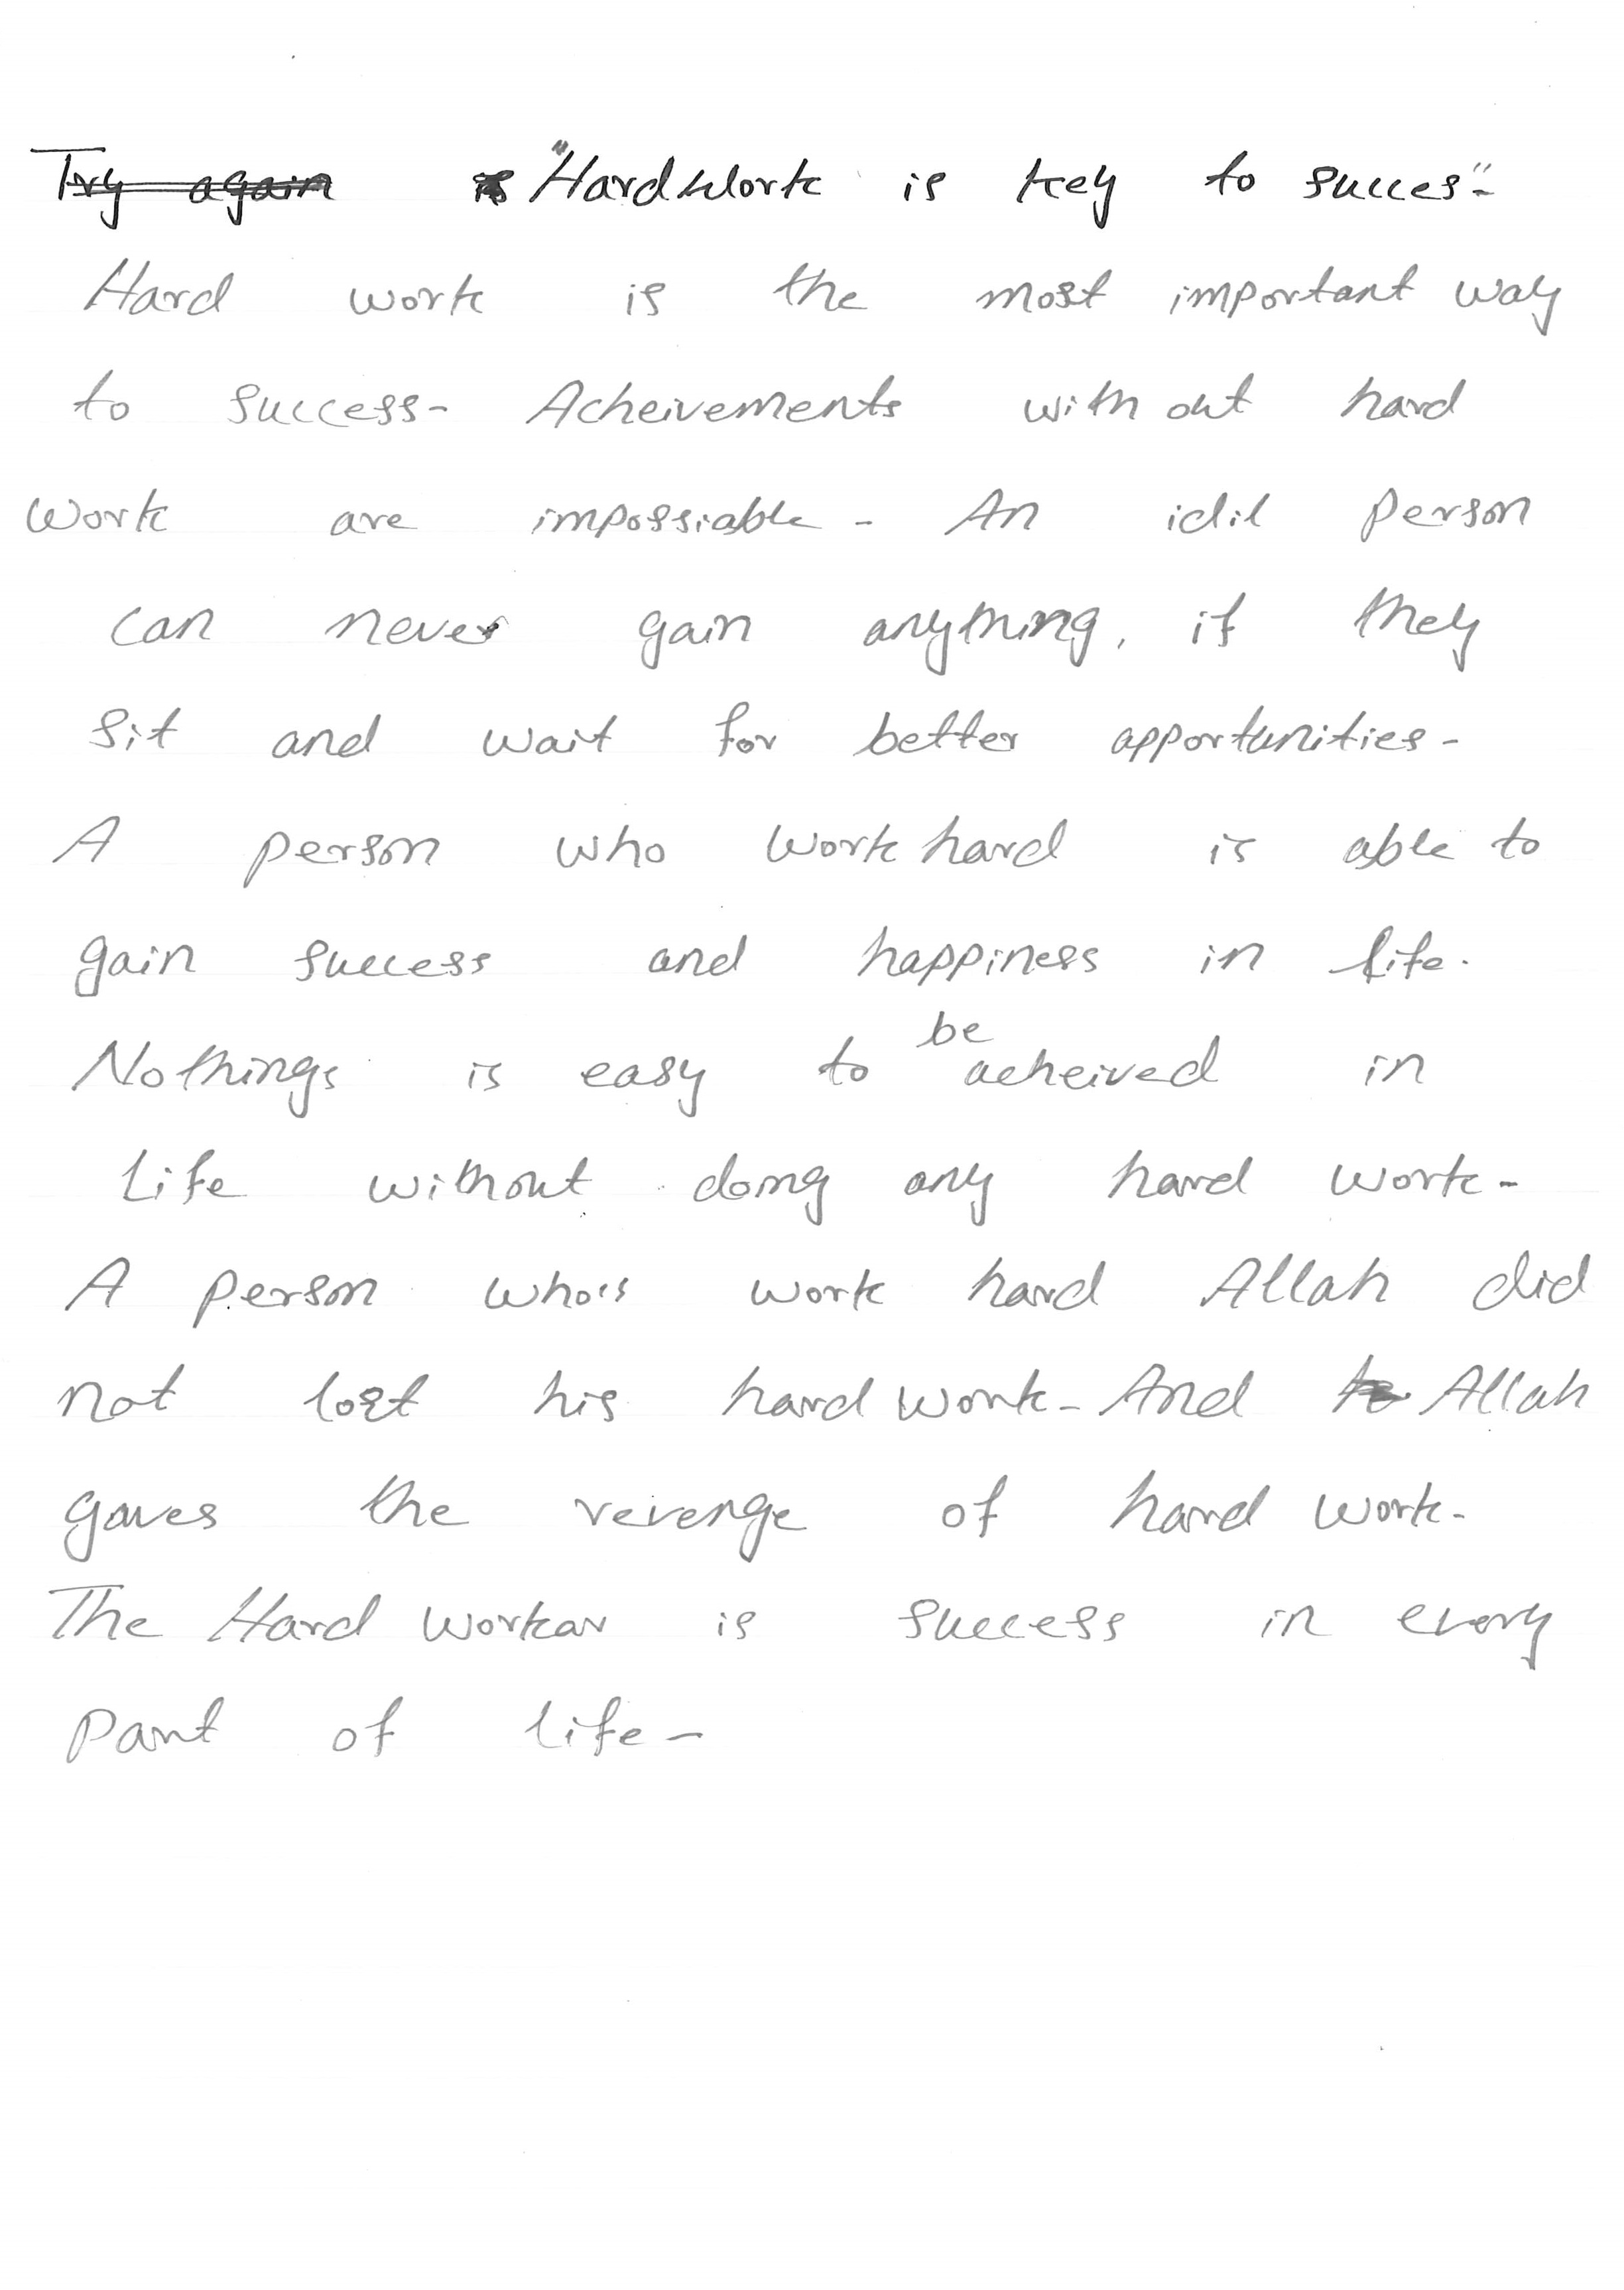 Try again is "Hard Work is key to succes"-
Hard work is the most important way
to success- Acheivements with out hard
work are impossiable - An idil person
can never gain anything, if they
sit and wait for better apportunities-
A person who work hard is able to
gain success and happiness in life.
Nothings is easy to be acheived in
life without doing any hard work-
A person who's work hard Allah did
not lost his hard work- And to Allah
gaves the revenge of hard work-
The Hard workar is success in every
part of life-